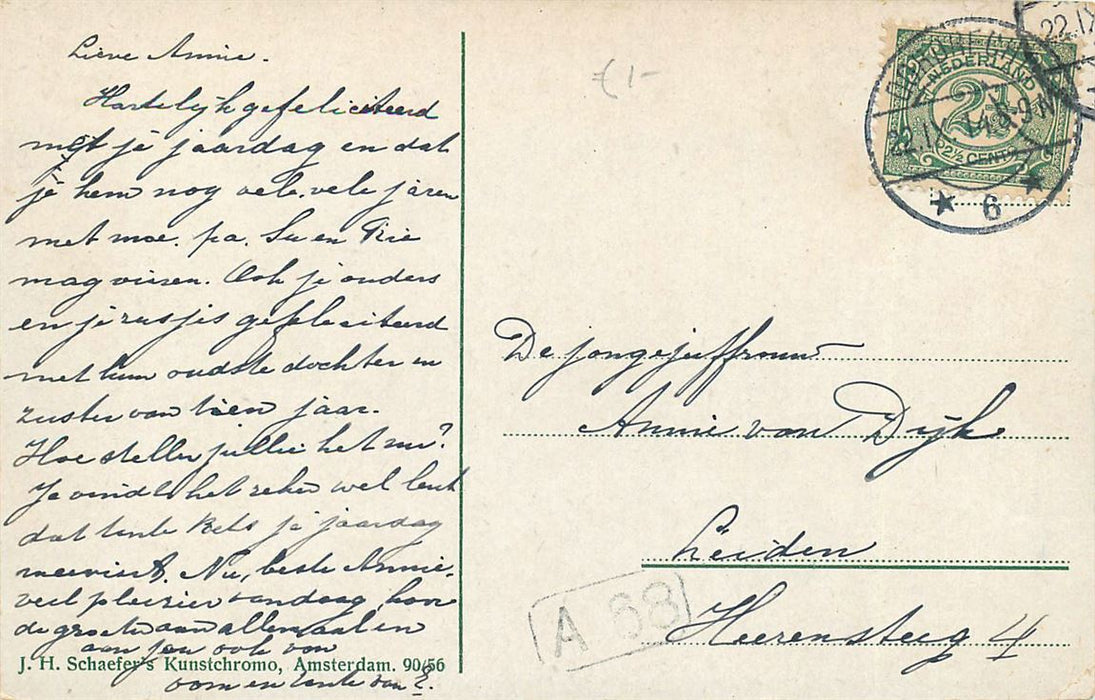 Lieve Annie.
Hartelijk gefeliciteerd
met je jaardag en dat
je hem nog vele, vele jaren
met moe, pa, Su en Rie
mag vieren. Ook je ouders
en je zusjes gefeliciteerd
met hun oudste dochter en
zuster van tien jaar.
Hoe stellen jullie het nu?
Je vindt het zeker wel leuk
dat tante Bets je jaardag
meeviert. Nu, beste Annie,
veel pleizier vandaag hoor
de groeten aan allemaal en
aan jou ook van
oom en tante van
J. H. Schaefer's Kunstchromo, Amsterdam. 90/56
€ 1-
NEDERLAND
2½
2½ CENT
22.IX
6
22.IX
De jongejuffrouw
Annie van Dijk
Leiden
Heerensteeg 4
A 68